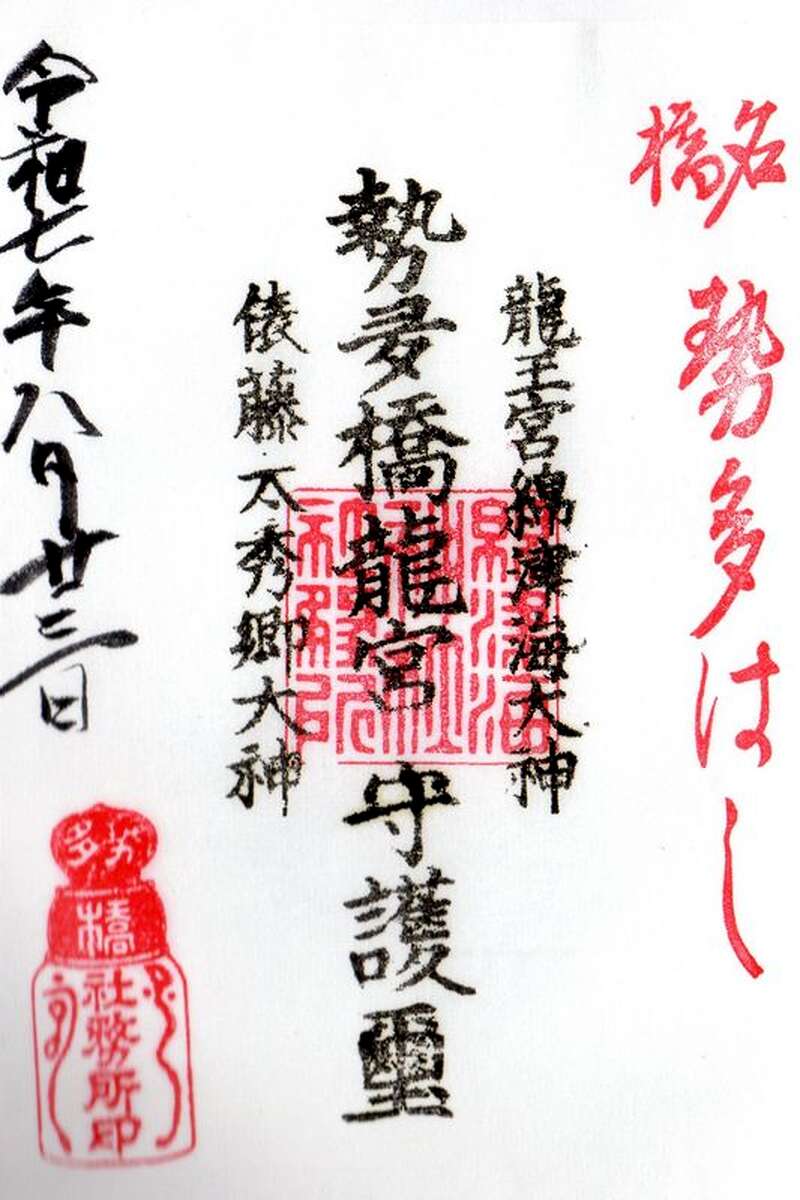 名橋 勢多はし
龍王宮綿津海大神
勢多橋龍宮守護璽
俵藤太秀郷大神
令和七年八月廿三日
勢多
橋
社務所印